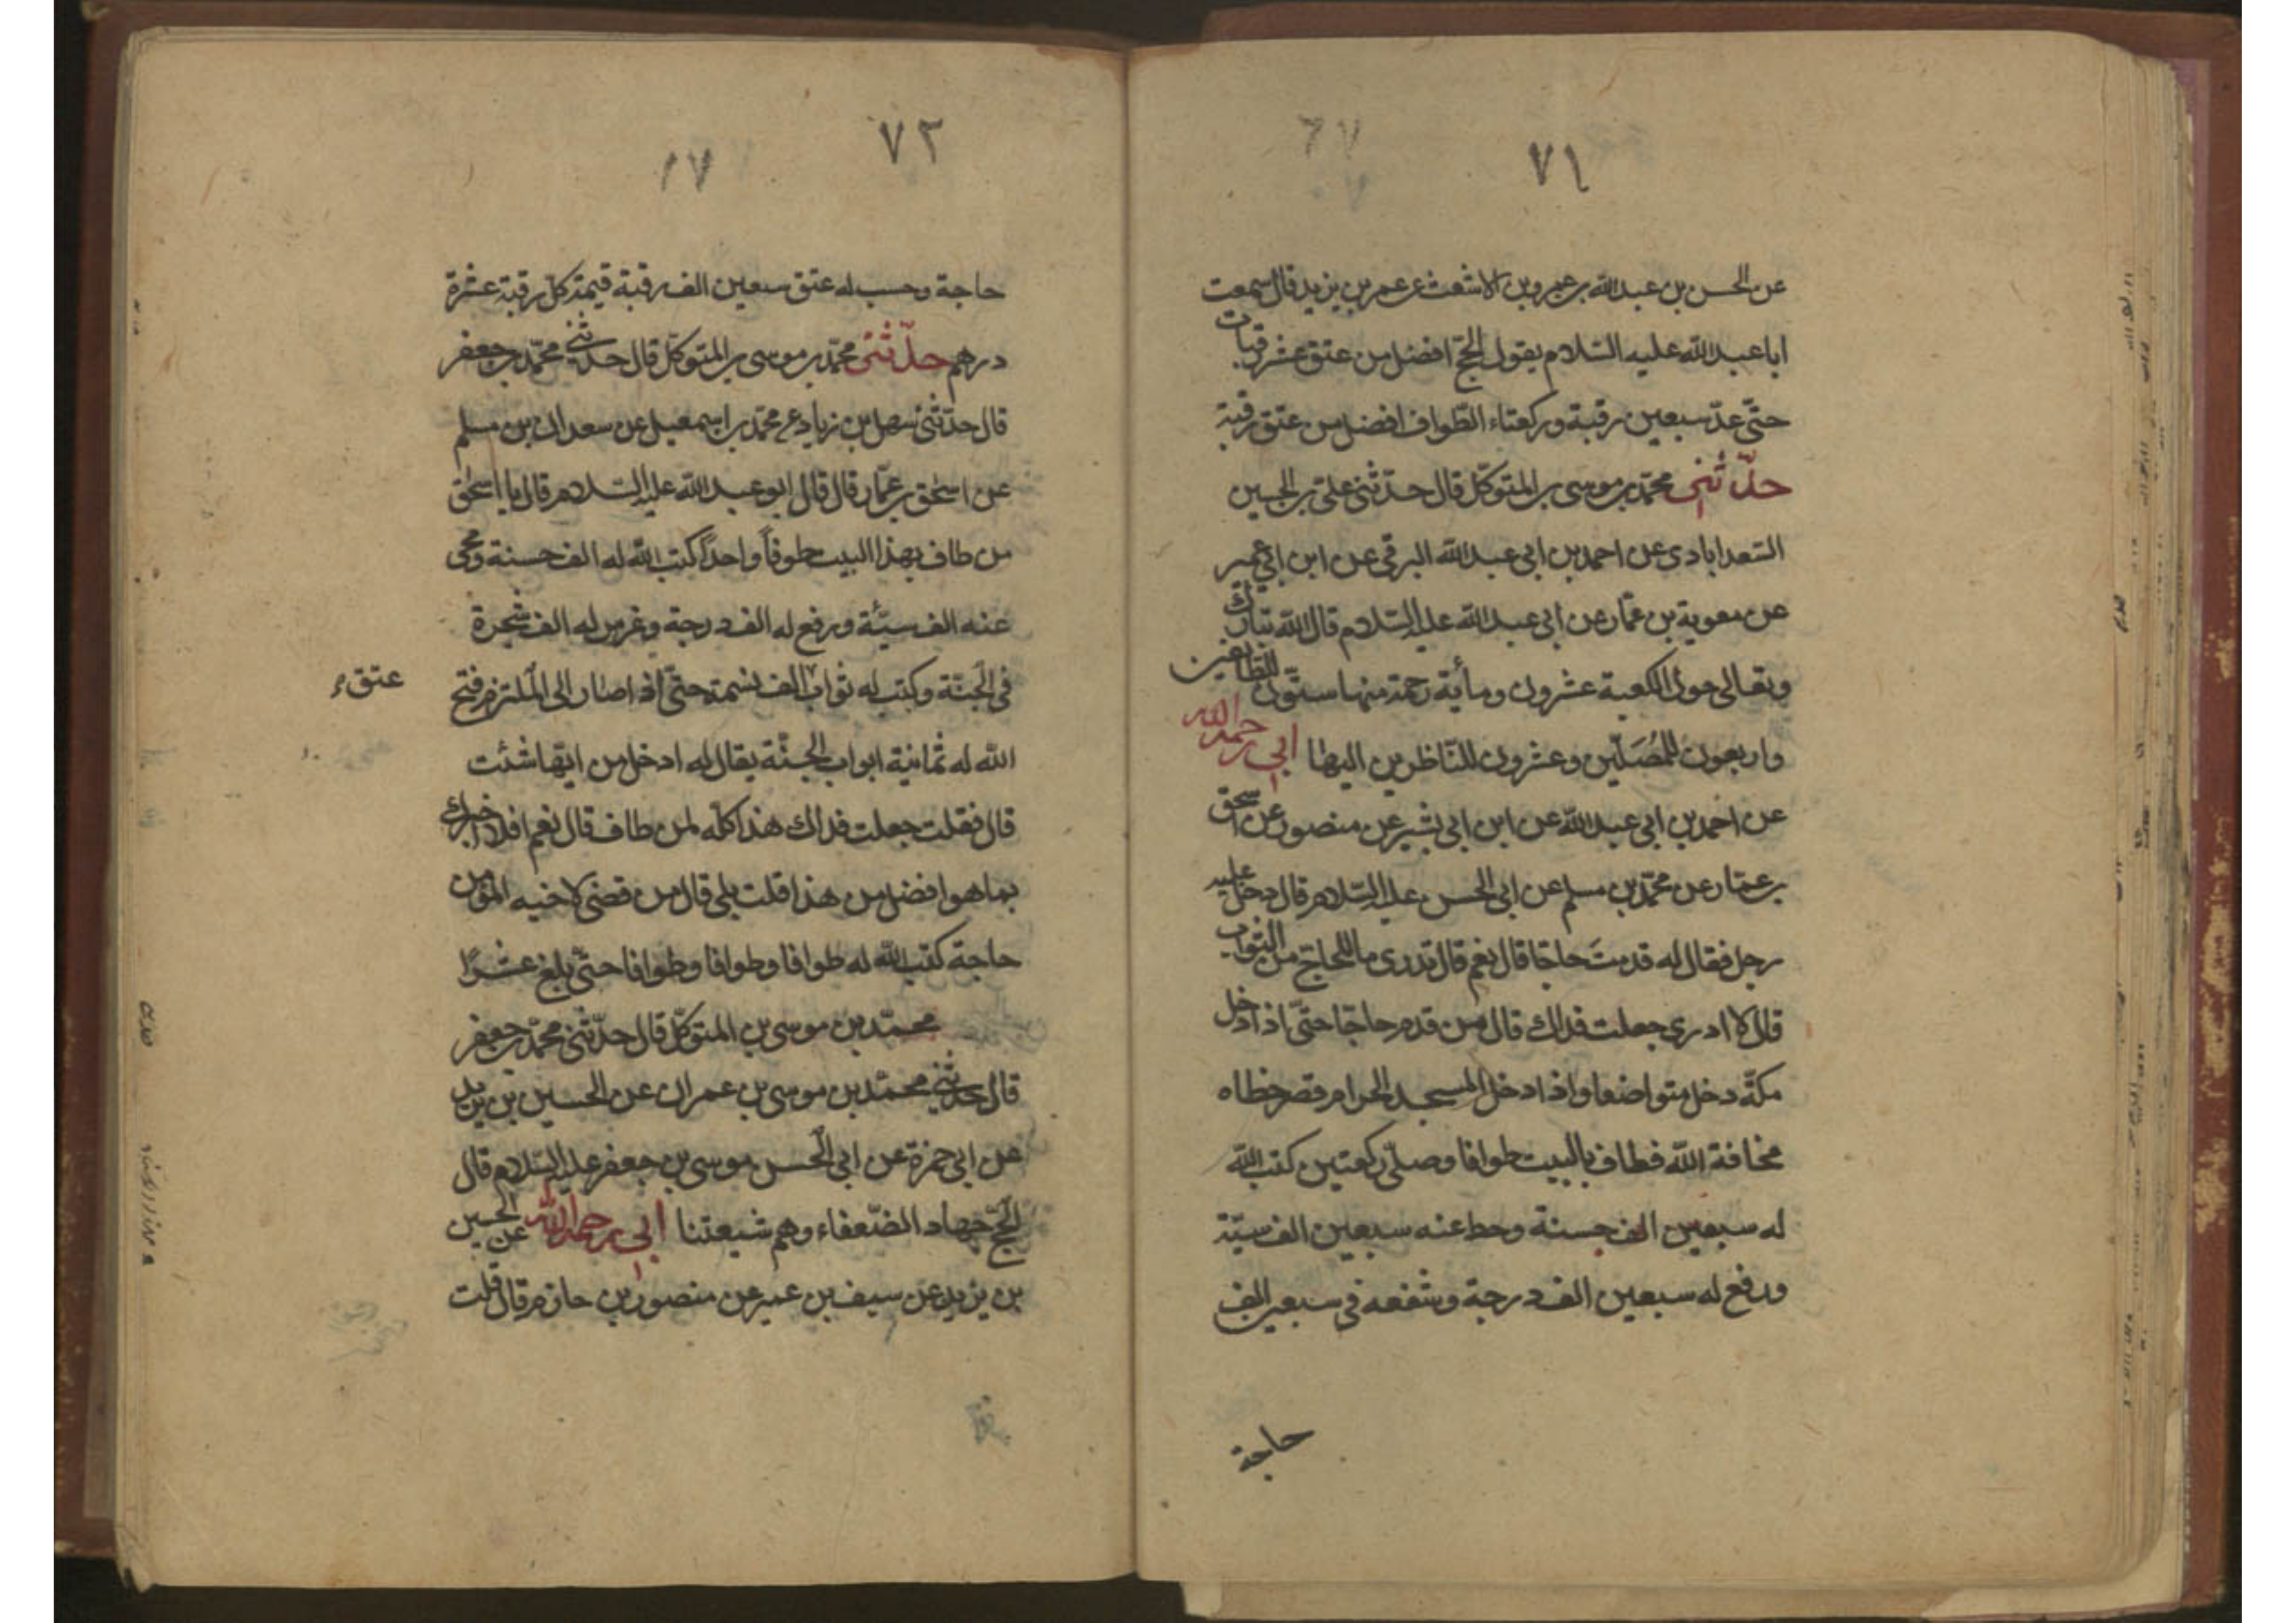 ٧١
عن الحسن بن عبد الله بن عمرو بن الاشعث عن عمر بن يزيد قال سمعت
ابا عبد الله عليه السلام يقول الحجّ افضل من عتق عشر رقبات
حتّى عدّ سبعين رقبة وركعتاء الطّواف افضل من عتق رقبة
حدّثنى محمّد بن موسى بن المتوكّل قال حدّثنى علىّ بن الحسين
السّعدابادى عن احمد بن ابى عبد الله البرقى عن ابن ابى عمير
عن معوية بن عمّار عن ابى عبد الله عليه السّلام قال الله تبارك
وتعالى حول الكعبة عشرون ومأية رحمة منها ستّون للطّايفين
واربعون للمُصَلّين وعشرون للنّاظرين اليها ابى رحمه الله
عن احمد بن ابى عبد الله عن ابن ابى بشير عن منصور عن اسحق
بن عمّار عن محمّد بن مسلم عن ابى الحسن عليه السّلام قال دخل عليه
رجل فقال له قدمتَ حاجّا قال نعم قال تدرى ما للحاجّ من الثّواب
قال لا ادرى جعلت فداك قال من قدم حاجّا حتّى اذا دخل
مكّة دخل متواضعا واذا دخل المسجد الحرام قصر خطاه
مخافة الله فطاف بالبيت طوافا وصلّى ركعتين كتب الله
له سبعين الف حسنة وحط عنه سبعين الف سيّئة
ورفع له سبعين الف درجة وشفعه فى سبعين الف
حاجة
٧٢
حاجة وحسب له عتق سبعين الف رقبة قيمة كلّ رقبة عشرة
درهم حدّثنى محمّد بن موسى بن المتوكّل قال حدّثنى محمّد بن جعفر
قال حدّثنى سهل بن زياد عن محمّد بن اسمعيل عن سعدان بن مسلم
عن اسحق بن عمّار قال قال ابو عبد الله عليه السّلام قال يا اسحق
من طاف بهذا البيت طوفاً واحداً كتب الله له الف حسنة ومحى
عنه الف سيّئة ورفع له الف درجة وغرس له الف شجرة
فى الجنّة وكتب له ثواب الف نسمة حتّى اذا صار الى الملتزم فتح
عتق
الله له ثمانية ابواب الجنّة يقال له ادخل من ايّها شئت
قال فقلت جعلت فداك هذا كلّه لمن طاف قال نعم افلا اخبرك
بما هو افضل من هذا قلت بلى قال من قضى لاخيه المؤمن
حاجة كتب الله له طوافا وطوافا وطوافا حتّى بلغ عشرًا
محمّد بن موسى بن المتوكّل قال حدّثنى محمّد بن جعفر
قال حدّثنى محمّد بن موسى بن عمران عن الحسين بن يزيد
عن ابى حمزة عن ابى الحسن موسى بن جعفر عليه السّلام قال
الحجّ جهاد الضّعفاء وهم شيعتنا ابى رحمه الله عن الحسين
بن يزيد عن سيف بن عمير عن منصور بن حازم قال قلت